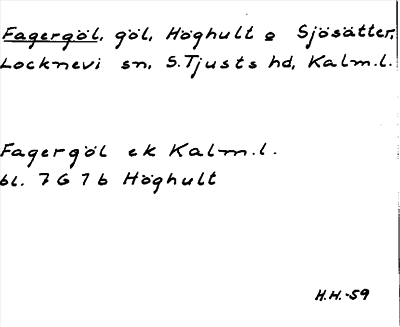 Fagergöl, göl, Höghult o Sjösätter,
Locknevi sn, S. Tjusts hd, Kalm.l.
Fagergöl ek Kalm.l.
bl. 7 G 7 b Höghult
H.H.-59